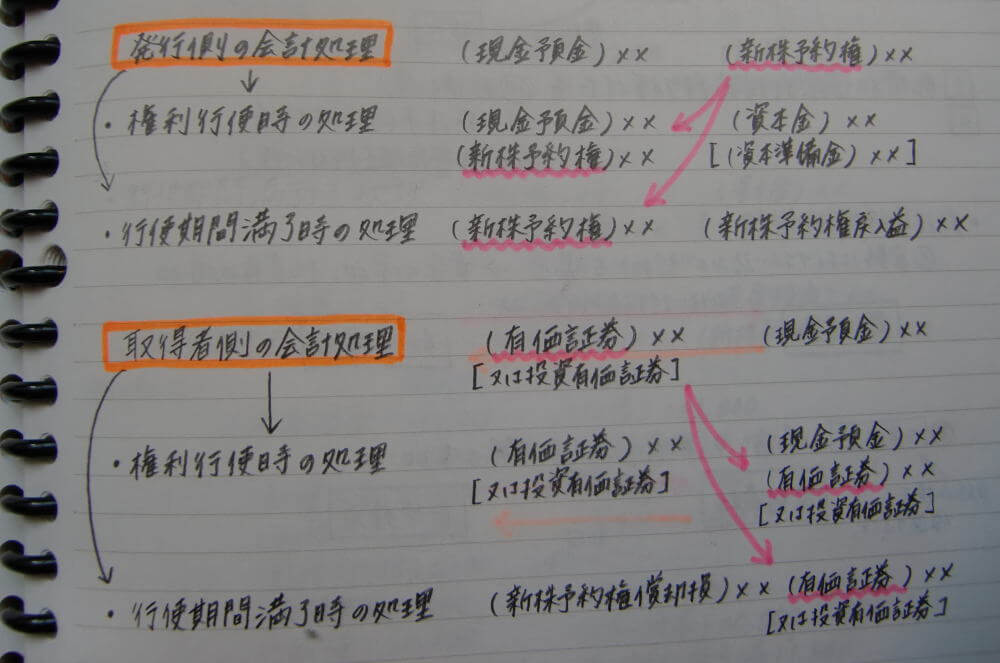 発行側の会計処理 (現金預金)×× (新株予約権)××
・権利行使時の処理 (現金預金)×× (資本金)××
(新株予約権)×× [(資本準備金)××]
・行使期間満了時の処理 (新株予約権)×× (新株予約権戻入益)××
取得者側の会計処理 (有価証券)×× (現金預金)××
[又は投資有価証券]
・権利行使時の処理 (有価証券)×× (現金預金)××
[又は投資有価証券] (有価証券)××
[又は投資有価証券]
・行使期間満了時の処理 (新株予約権償却損)×× (有価証券)××
[又は投資有価証券]